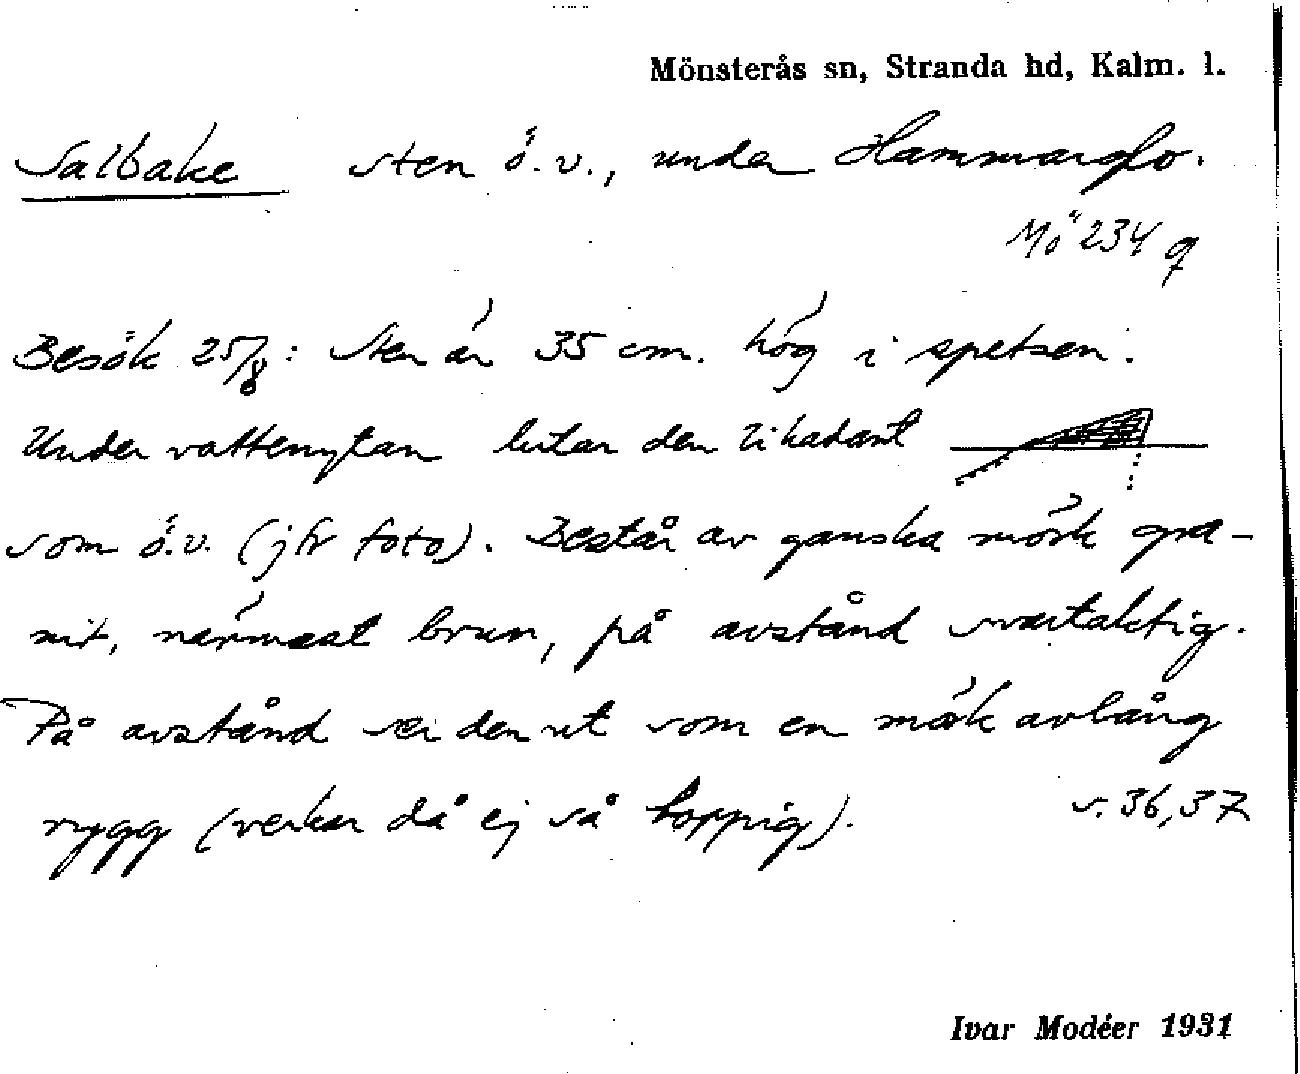 Mönsterås sn, Stranda hd, Kalm. l.
Salbake sten ö.v., under Hammarglo.
Mö 234 q
Besök 25/8: Sten är 35 cm. hög i spetsen.
Under vattenytan lutar den likadant
som ö.v. (jfr foto). Består av ganska mörk gra-
nit, närmast brun, på avstånd svartaktig.
På avstånd ser den ut som en mörk avlång
rygg (verkar då ej så toppig).
s. 36, 37
Ivar Modéer 1931